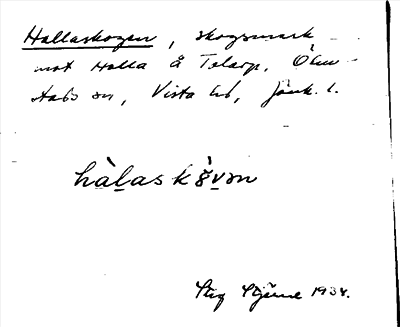 Hallaskogen, skogsmark
mot Halla å Telarp, Ölm-
stads sn, Vista hd, Jönk. l.
hàlaskò̤van
Stig Stjärne 1934.